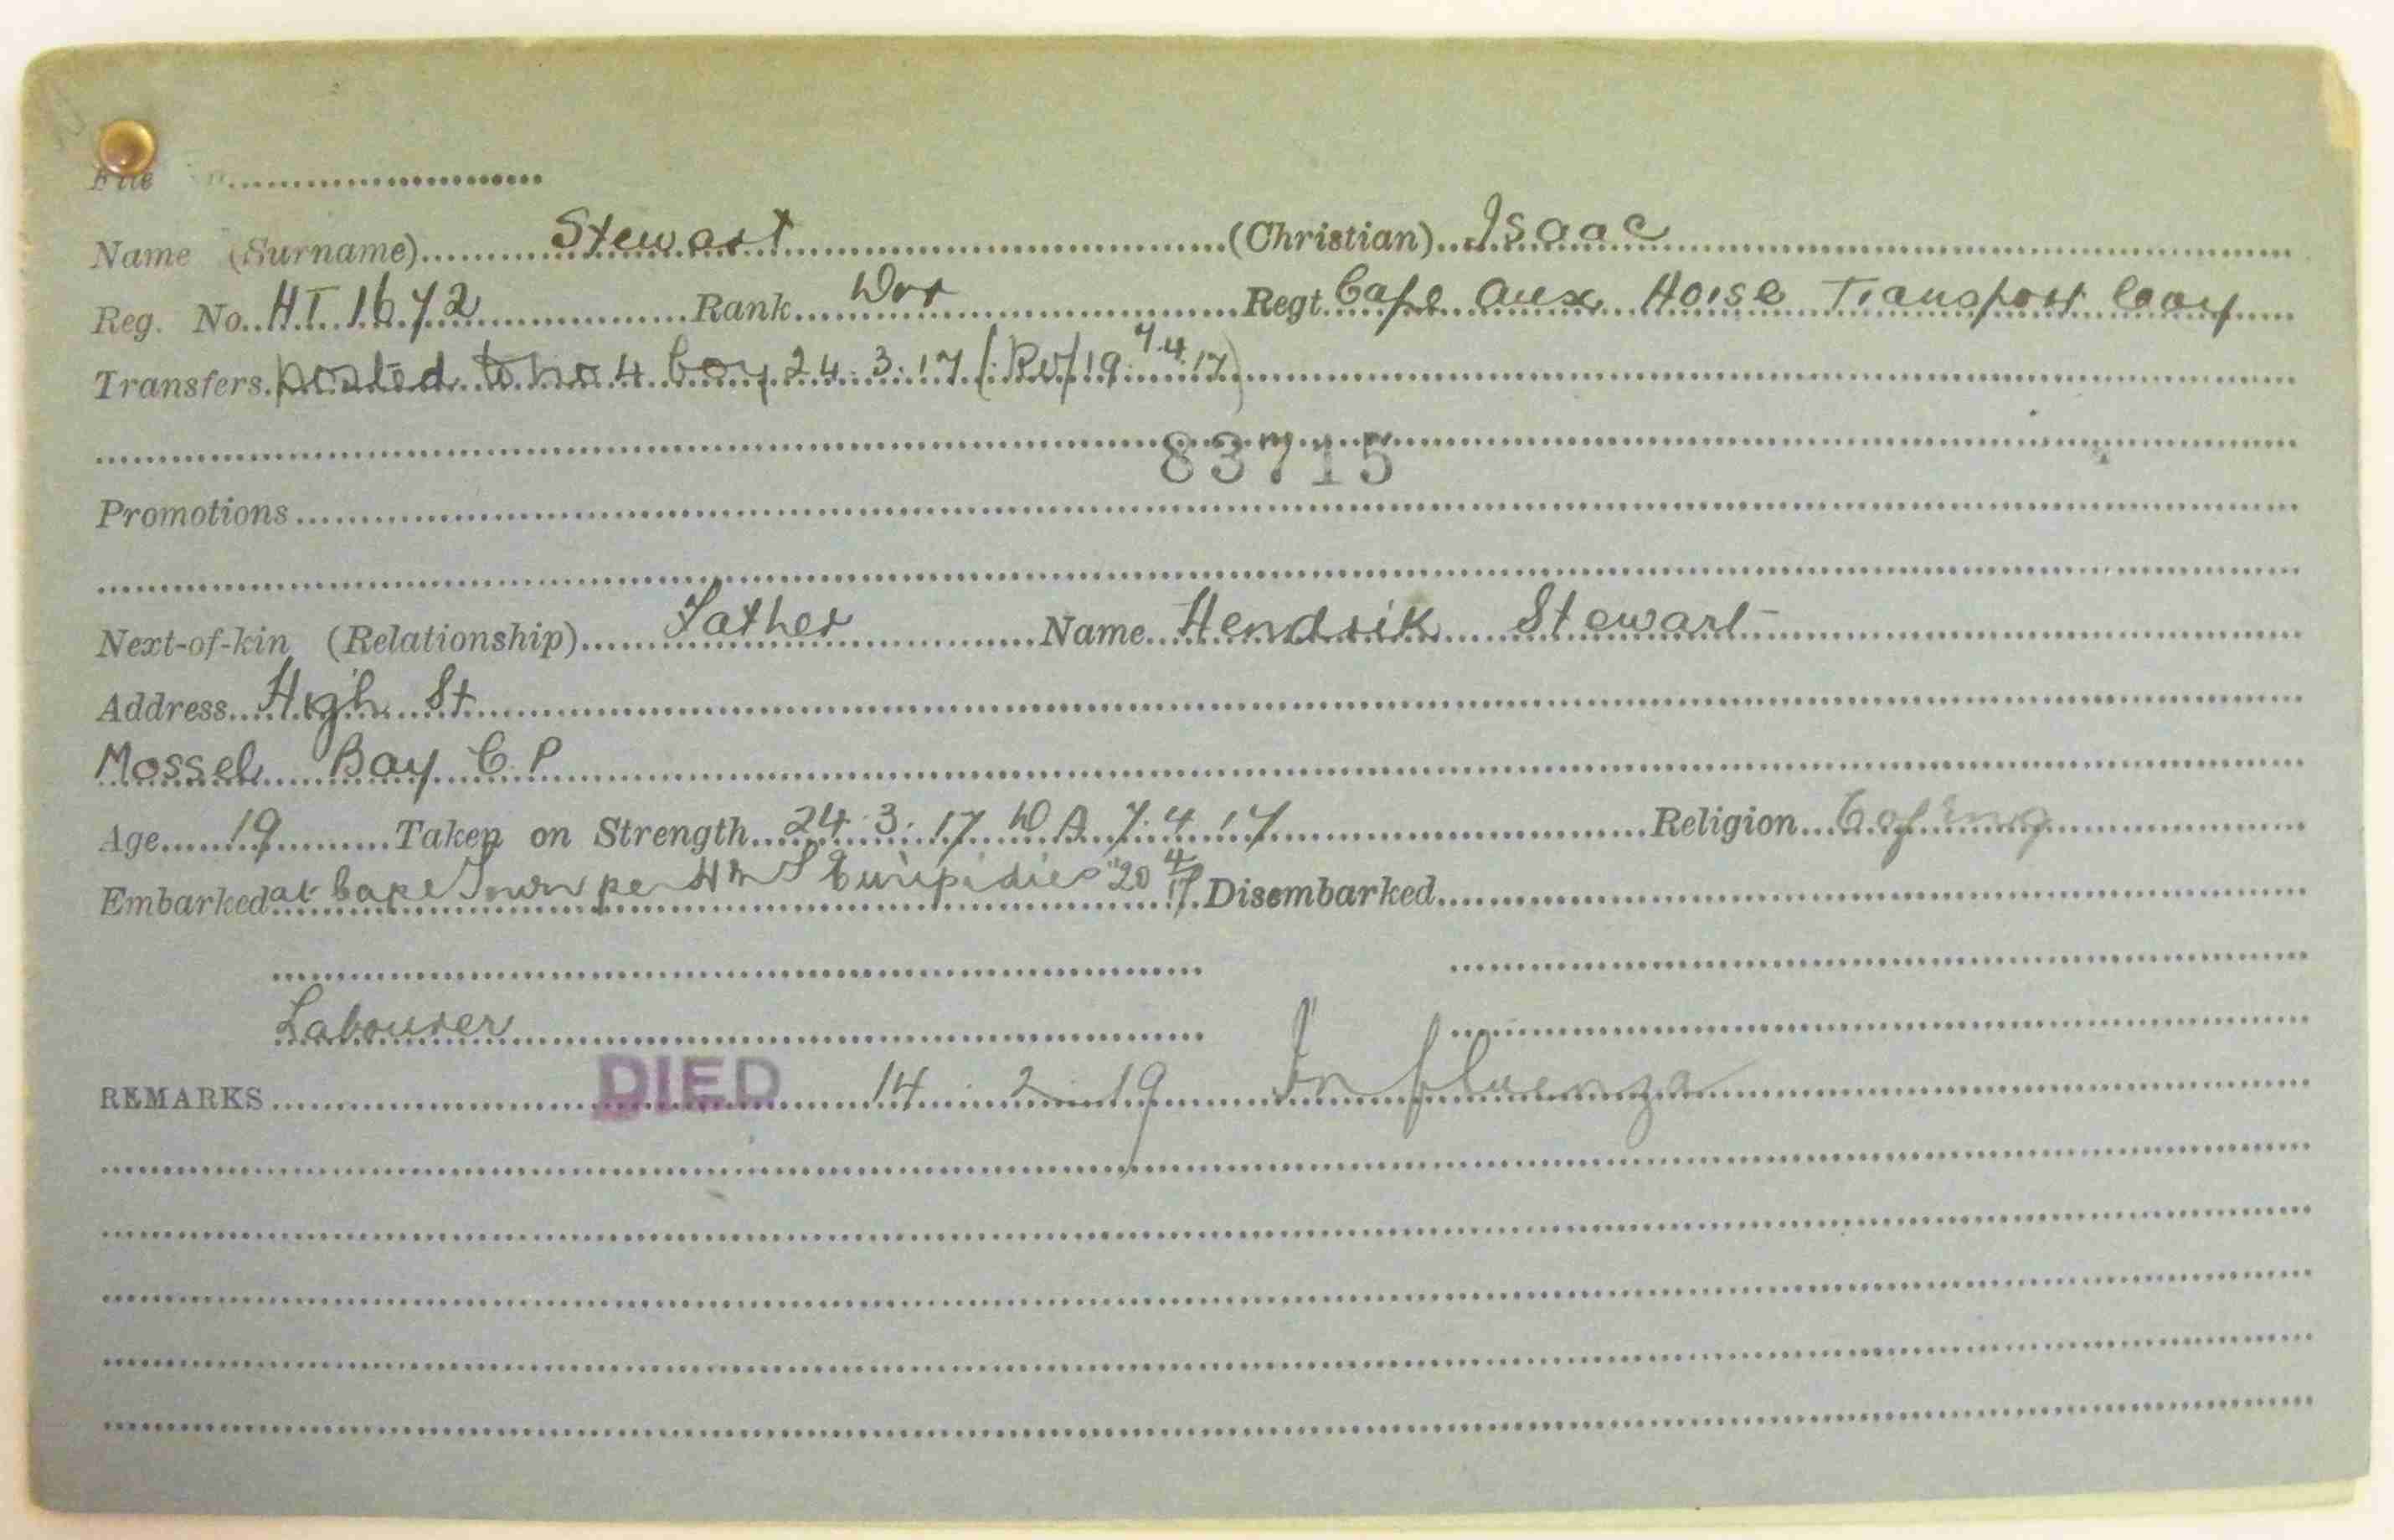 File
Name (Surname) Stewart (Christian) Isaac
Reg. No. HT 1672 Rank Dvr Regt. Cape Aux Horse Transport Coy
Transfers. posted to no 4 Coy 24.3.17 (Rv/19 7.4.17)
83715
Promotions
Next-of-kin (Relationship) Father Name Hendrik Stewart
Address High St
Mossel Bay C.P
Age 19 Taken on Strength 24.3.17 D A 7.4.17 Religion C of Eng
Embarked at Cape Town per HMS Euripidies 20 4/17 Disembarked
Labourer
REMARKS DIED 14.2.19 Influenza